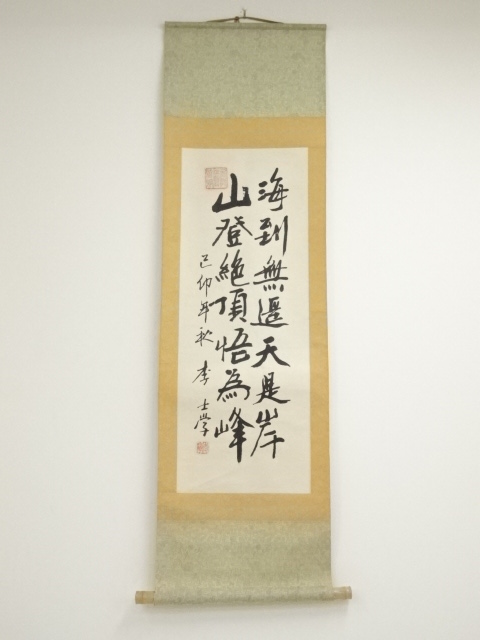 海到無邊天是岸
山登絕頂悟為峰
己卯年秋 李士學